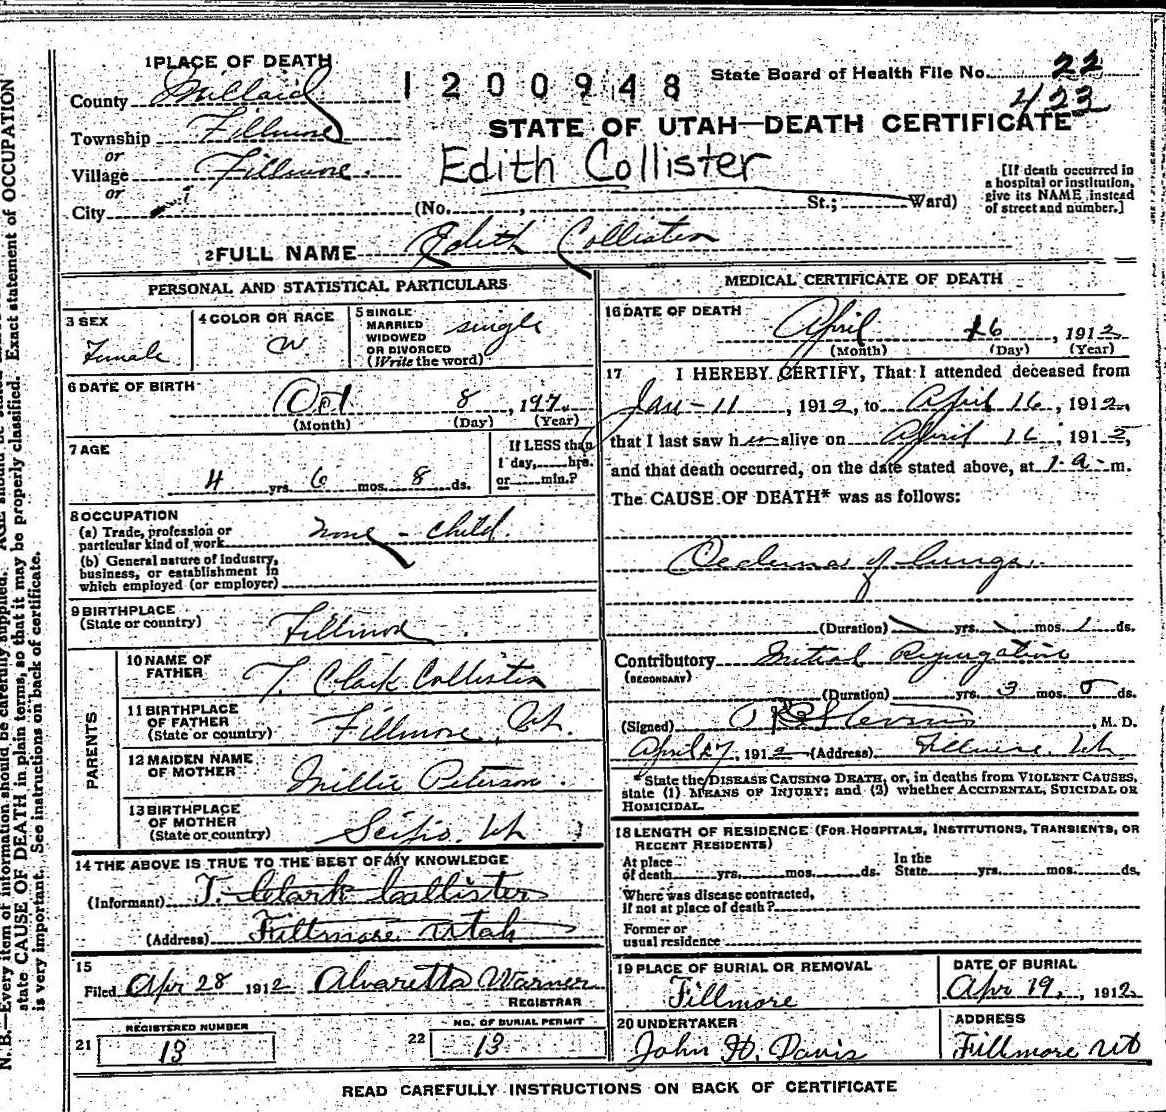 1 PLACE OF DEATH
County Millard
Township Fillmore
or
Village Fillmore.
or
City
1200948
State Board of Health File No. 22
423
STATE OF UTAH—DEATH CERTIFICATE
Edith Collister
(No. , St.; Ward)
[If death occurred in
a hospital or institution,
give its NAME instead
of street and number.]
2 FULL NAME Edith Collister
PERSONAL AND STATISTICAL PARTICULARS
3 SEX
Female
4 COLOR OR RACE
W
5 SINGLE
MARRIED
WIDOWED
OR DIVORCED
(Write the word)
single
6 DATE OF BIRTH
Oct 8, 1907.
(Month) (Day) (Year)
7 AGE
4 yrs. 6 mos. 8 ds.
If LESS than
1 day, hrs.
or min.?
8 OCCUPATION
(a) Trade, profession or
particular kind of work
none - child.
(b) General nature of industry,
business, or establishment in
which employed (or employer)
9 BIRTHPLACE
(State or country)
Fillmore
PARENTS
10 NAME OF
FATHER
T. Clark Collister
11 BIRTHPLACE
OF FATHER
(State or country)
Fillmore, Ut.
12 MAIDEN NAME
OF MOTHER
Millie Peterson.
13 BIRTHPLACE
OF MOTHER
(State or country)
Scipio. Ut
14 THE ABOVE IS TRUE TO THE BEST OF MY KNOWLEDGE
(Informant) T. Clark Callister
(Address) Fillmore Utah
15
Filed Apr 28 1912 Alvaretta Warner
REGISTRAR
REGISTERED NUMBER
21 13
NO. OF BURIAL PERMIT
22 13
MEDICAL CERTIFICATE OF DEATH
16 DATE OF DEATH
April 16, 1912
(Month) (Day) (Year)
17 I HEREBY CERTIFY, That I attended deceased from
Jan - 11, 1912, to April 16, 1912,
that I last saw her alive on April 16, 1912,
and that death occurred, on the date stated above, at 1-a-m.
The CAUSE OF DEATH* was as follows:
Oedema of lungs.
(Duration) yrs. mos. 1 ds.
Contributory Mitral Regurgitation
(SECONDARY)
(Duration) yrs. 3 mos. 5 ds.
(Signed) Stevens, M. D.
April 27, 1912 (Address) Fillmore. Ut
* State the DISEASE CAUSING DEATH, or, in deaths from VIOLENT CAUSES,
state (1) MEANS OF INJURY; and (2) whether ACCIDENTAL, SUICIDAL OR
HOMICIDAL.
18 LENGTH OF RESIDENCE (FOR HOSPITALS, INSTITUTIONS, TRANSIENTS, OR
RECENT RESIDENTS)
At place
of death yrs. mos. ds.
In the
State yrs. mos. ds.
Where was disease contracted,
if not at place of death?
Former or
usual residence
19 PLACE OF BURIAL OR REMOVAL
Fillmore
DATE OF BURIAL
Apr 19, 1912
20 UNDERTAKER
John H. Davis
ADDRESS
Fillmore Ut
READ CAREFULLY INSTRUCTIONS ON BACK OF CERTIFICATE
N. B.—Every item of information should be carefully supplied.
state CAUSE OF DEATH in plain terms, so that it may be properly classified. Exact statement of OCCUPATION
is very important. See instructions on back of certificate.